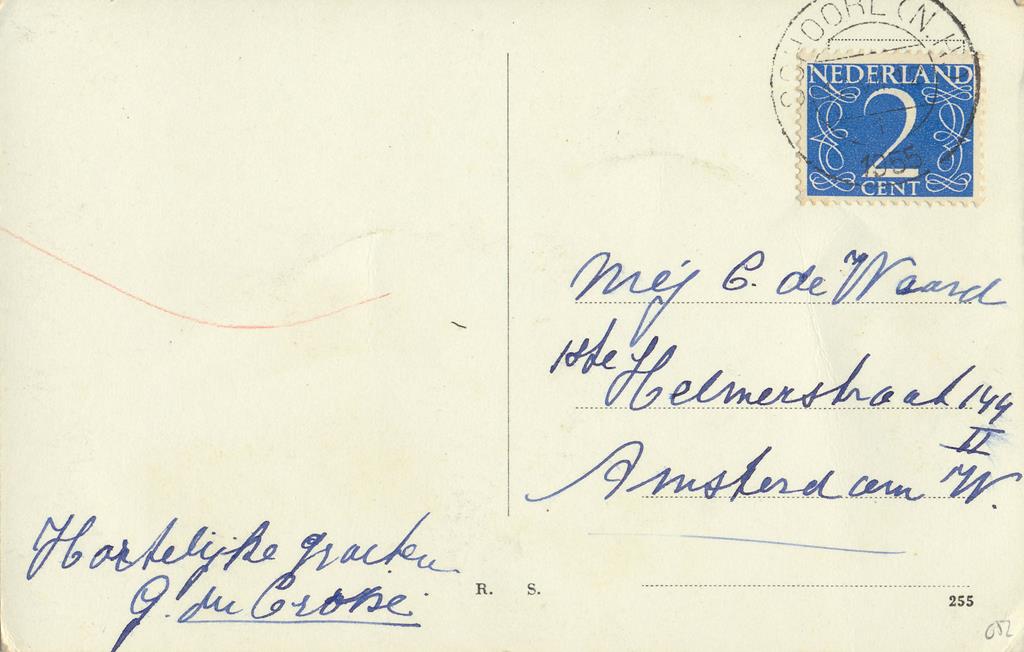 SCHOORL (N.H.)
NEDERLAND
2
1955
CENT
Mej C. de Waard
1ste Helmerstraat 144
II
Amsterdam W.
Hartelijke groeten
G. du Croke
R. S.
255